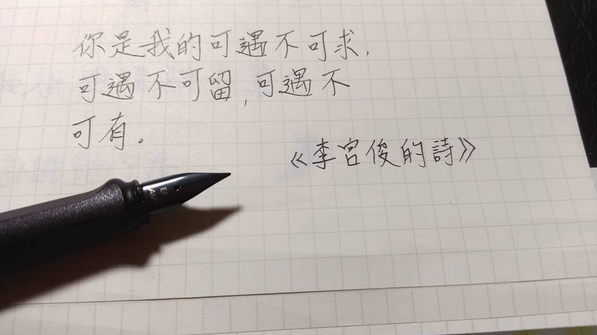 你是我的可遇不可求,
可遇不可留,可遇不
可有。
《李宮俊的詩》